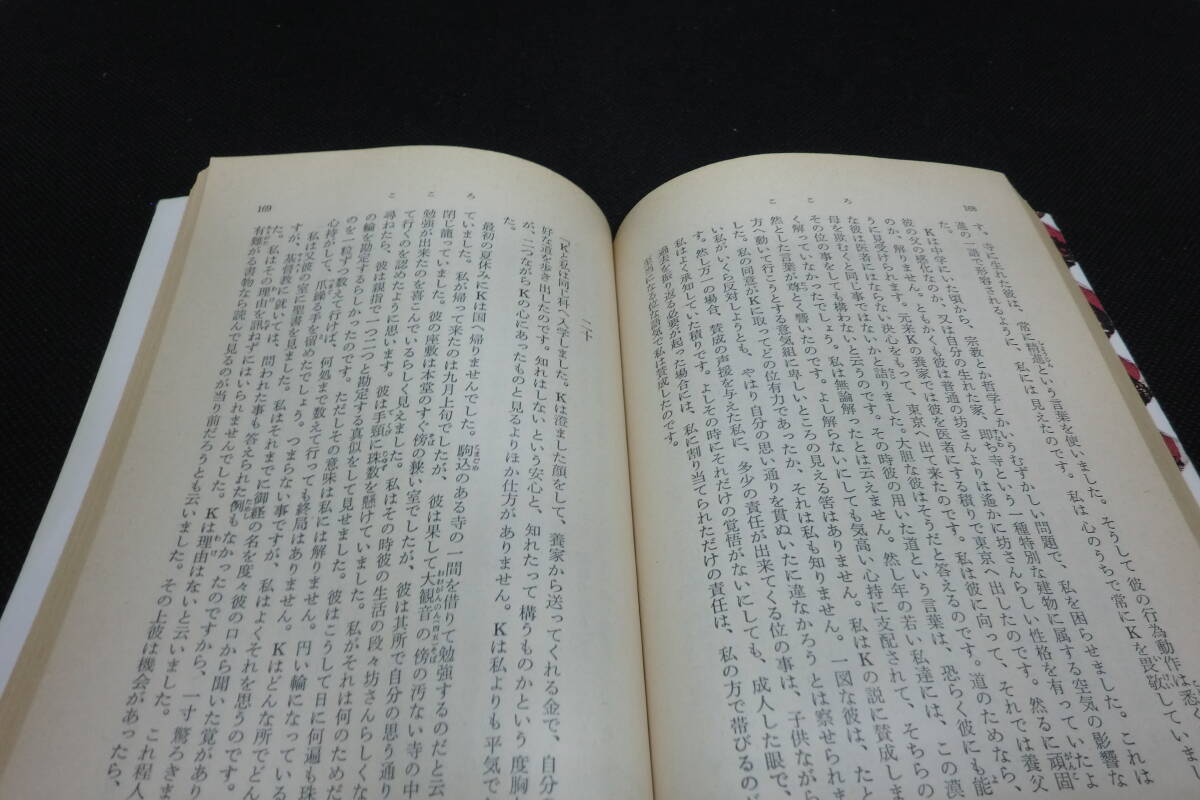 こころ
168
す。寺に生れた彼は、常に精進という言葉を使いました。そうして彼の行為動作は悉く
進の一語で形容されるように、私には見えたのです。私は心のうちで常にKを畏敬していま
Kは中学にいた頃から、宗教とか哲学とかいうむずかしい問題で、私を困らせました。これは
彼の父の感化なのか、又は自分の生れた家、即ち寺という一種特別な建物に属する空気の影響な
のか、解りません。ともかくも彼は普通の坊さんよりは遙かに坊さんらしい性格を有っていたよ
うに見受けられます。元来Kの養家では彼を医者にする積りで東京へ出したのです。然るに頑固
な彼は医者にはならない決心をもって、東京へ出て来たのです。私は彼に向って、それでは養父
母を欺むくと同じ事ではないかと詰りました。大胆な彼はそうだと答えるのです。道のためなら、
その位の事をしても構わないと云うのです。その時彼の用いた道という言葉は、恐らく彼にも能
く解っていなかったでしょう。私は無論解ったとは云えません。然し年の若い私達には、この漠
然とした言葉が尊とく響いたのです。よし解らないにしても気高い心持に支配されて、そちらの
方へ動いて行こうとする意気組に卑しいところの見える筈はありません。私はKの説に賛成しま
した。私の同意がKに取ってどの位有力であったか、それは私も知りません。一図な彼は、たと
い私がいくら反対しようとも、やはり自分の思い通りを貫ぬいたに違なかろうとは察せられま
す。然し万一の場合、賛成の声援を与えた私に、多少の責任が出来てくる位の事は、子供ながら
私はよく承知していた積りです。よしその時にそれだけの覚悟がないにしても、成人した眼で、
過去を振り返る必要が起った場合には、私に割り当てられただけの責任は、私の方で帯びるのが
至当になる位な語気で私は賛成したのです。
こころ
169
二十
「Kと私は同じ科へ入学しました。Kは澄ました顔をして、養家から送ってくれる金で、自分
好な道を歩き出したのです。知れはしないという安心と、知れたって構うものかという度胸
が、二つながらKの心にあったものと見るよりほか仕方がありません。Kは私よりも平気で
た。
最初の夏休みにKは国へ帰りませんでした。駒込のある寺の一間を借りて勉強するのだと云
ていました。私が帰って来たのは九月上旬でしたが、彼は果して大観音の傍の汚ない寺の中
閉じ籠っていました。彼の座敷は本堂のすぐ傍の狭い室でしたが、彼は其所で自分の思う通り
勉強が出来たのを喜こんでいるらしく見えました。私はその時彼の生活の段々坊さんらしくな
て行くのを認めたように思います。彼は手頸に珠数を懸けていました。私がそれは何のためだ
尋ねたら、彼は親指で一つ二つと勘定する真似をして見せました。彼はこうして日に何遍も珠
の輪を勘定するらしかったのです。ただしその意味は私には解りません。円い輪になっている
のを一粒ずつ数えて行けば、何処まで数えて行っても終局はありません。Kはどんな所でどん
心持がして、爪繰る手を留めたでしょう。つまらない事ですが、私はよくそれを思うのです。
私は又彼の室に聖書を見ました。私はそれまでに御経の名を度々彼の口から聞いた覚があり
すが、基督教に就いては、問われた事も答えられた例もなかったのですから、一寸驚ろきま
た。私はその理由を訊ねずにはいられませんでした。Kは理由はないと云いました。これ程人
有難がる書物なら読んで見るのが当り前だろうとも云いました。その上彼は機会があったら、